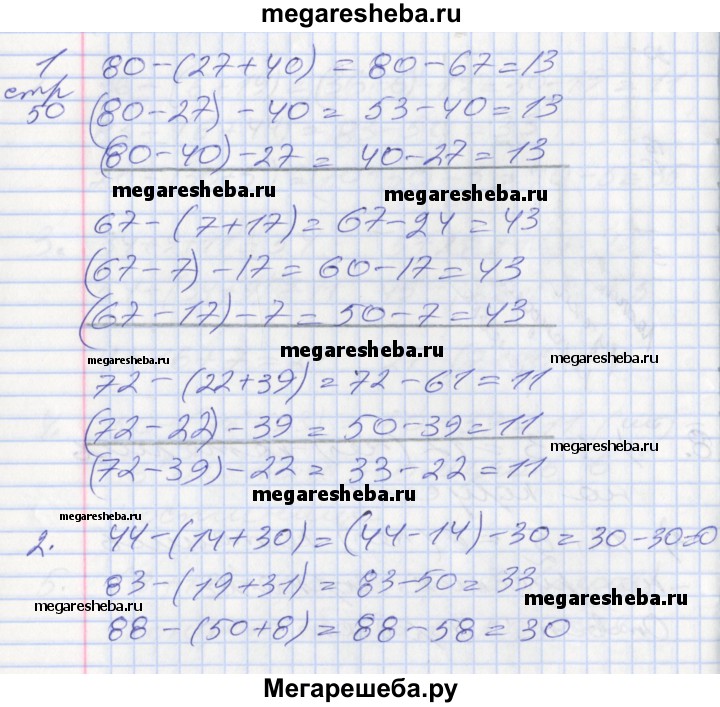 megaresheba.ru
1 80-(27+40) = 80-67=13
стр 50 (80-27) - 40 = 53-40=13
(80-40)-27 = 40-27=13
megaresheba.ru megaresheba.ru
67-(7+17)=67-24=43
(67-7)-17=60-17=43
(67-17)-7=50-7=43
megaresheba.ru megaresheba.ru megaresheba.ru
72-(22+39)=72-61=11
(72-22)-39=50-39=11
(72-39)-22=33-22=11
megaresheba.ru
megaresheba.ru
2. 44-(14+30)=(44-14)-30=30-30=0
83-(19+31)=83-50=33
megaresheba.ru megaresheba.ru
88-(50+8)=88-58=30
Мегарешеба.ру